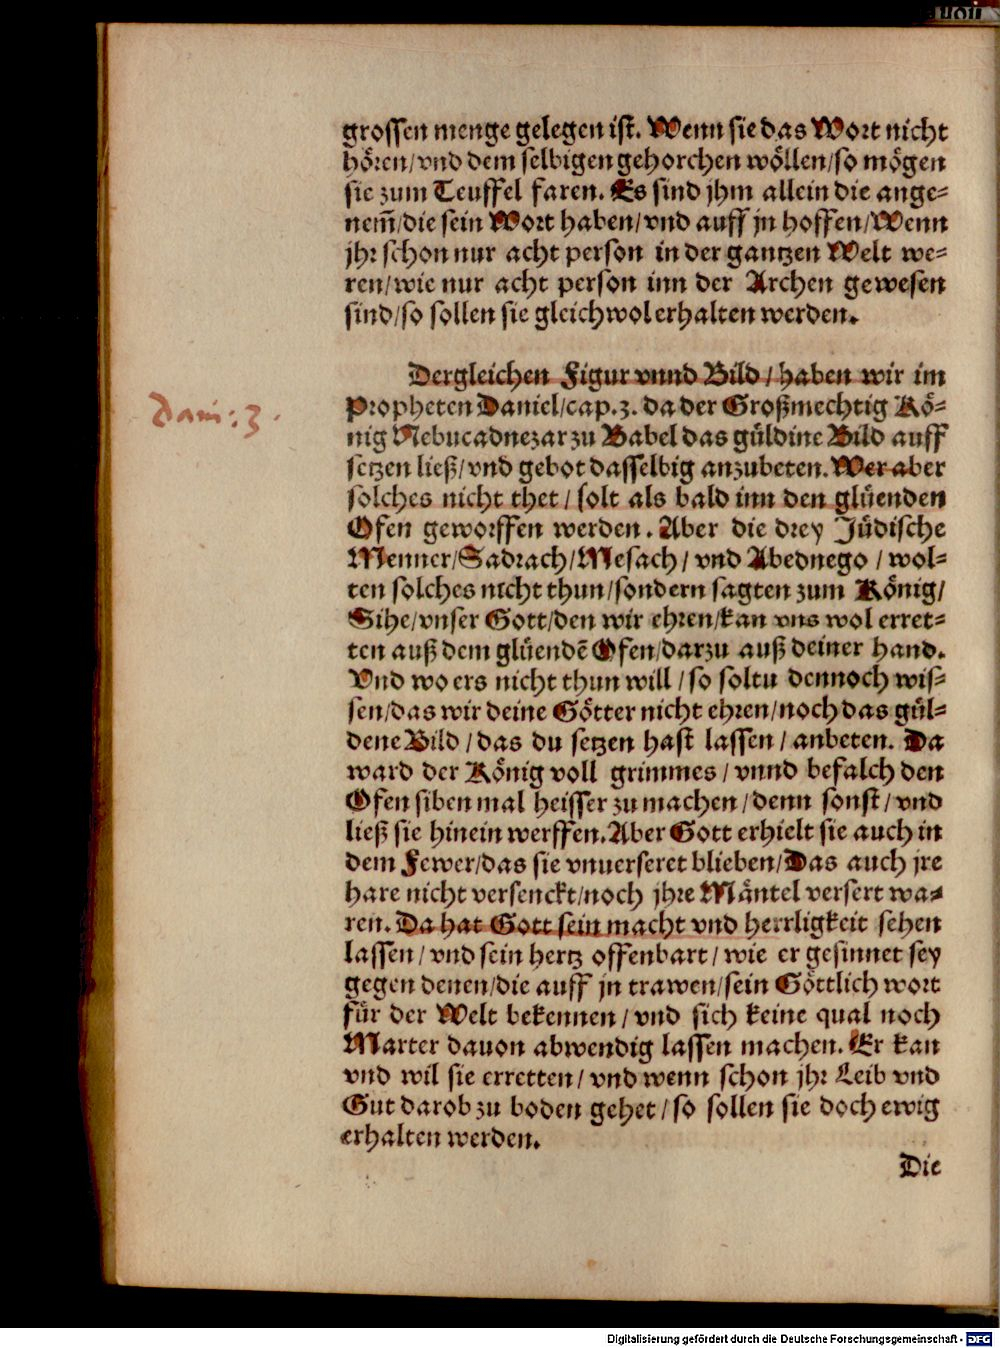 grossen menge gelegen ist. Wenn sie das Wort nicht
hören/vnd dem selbigen gehorchen wöllen/so mögen
sie zum Teuffel faren. Es sind jhm allein die ange-
nem̃/die sein Wort haben/vnd auff jn hoffen/Wenn
jhr schon nur acht person in der gantzen Welt we-
ren/wie nur acht person inn der Archen gewesen
sind/so sollen sie gleichwol erhalten werden.
Dergleichen Figur vnnd Bild/haben wir im
Dani: 3.
Propheten Daniel/cap.3. da der Großmechtig Kö-
nig Nebucadnezar zu Babel das güldine Bild auff
setzen ließ/vnd gebot dasselbig anzubeten. Wer aber
solches nicht thet/solt als bald inn den glüenden
Ofen geworffen werden. Aber die drey Jüdische
Menner/Sadrach/Mesach/vnd Abednego/wol-
ten solches nicht thun/sondern sagten zum König/
Sihe/vnser Gott/den wir ehren/kan vns wol erret-
ten auß dem glüendẽ Ofen/darzu auß deiner hand.
Vnd wo ers nicht thun will/so soltu dennoch wis-
sen/das wir deine Götter nicht ehren/noch das gül-
dene Bild/das du setzen hast lassen/anbeten. Da
ward der König voll grimmes/vnnd befalch den
Ofen siben mal heisser zu machen/denn sonst/vnd
ließ sie hinein werffen. Aber Gott erhielt sie auch in
dem Fewer/das sie vnuerseret blieben/Das auch jre
hare nicht versenckt/noch jhre Mäntel versert wa-
ren. Da hat Gott sein macht vnd herrligkeit sehen
lassen/vnd sein hertz offenbart/wie er gesinnet sey
gegen denen/die auff jn trawen/sein Göttlich wort
für der Welt bekennen/vnd sich keine qual noch
Marter dauon abwendig lassen machen. Er kan
vnd wil sie erretten/vnd wenn schon jhr Leib vnd
Gut darob zu boden gehet/so sollen sie doch ewig
erhalten werden.
Die
Digitalisierung gefördert durch die Deutsche Forschungsgemeinschaft - DFG